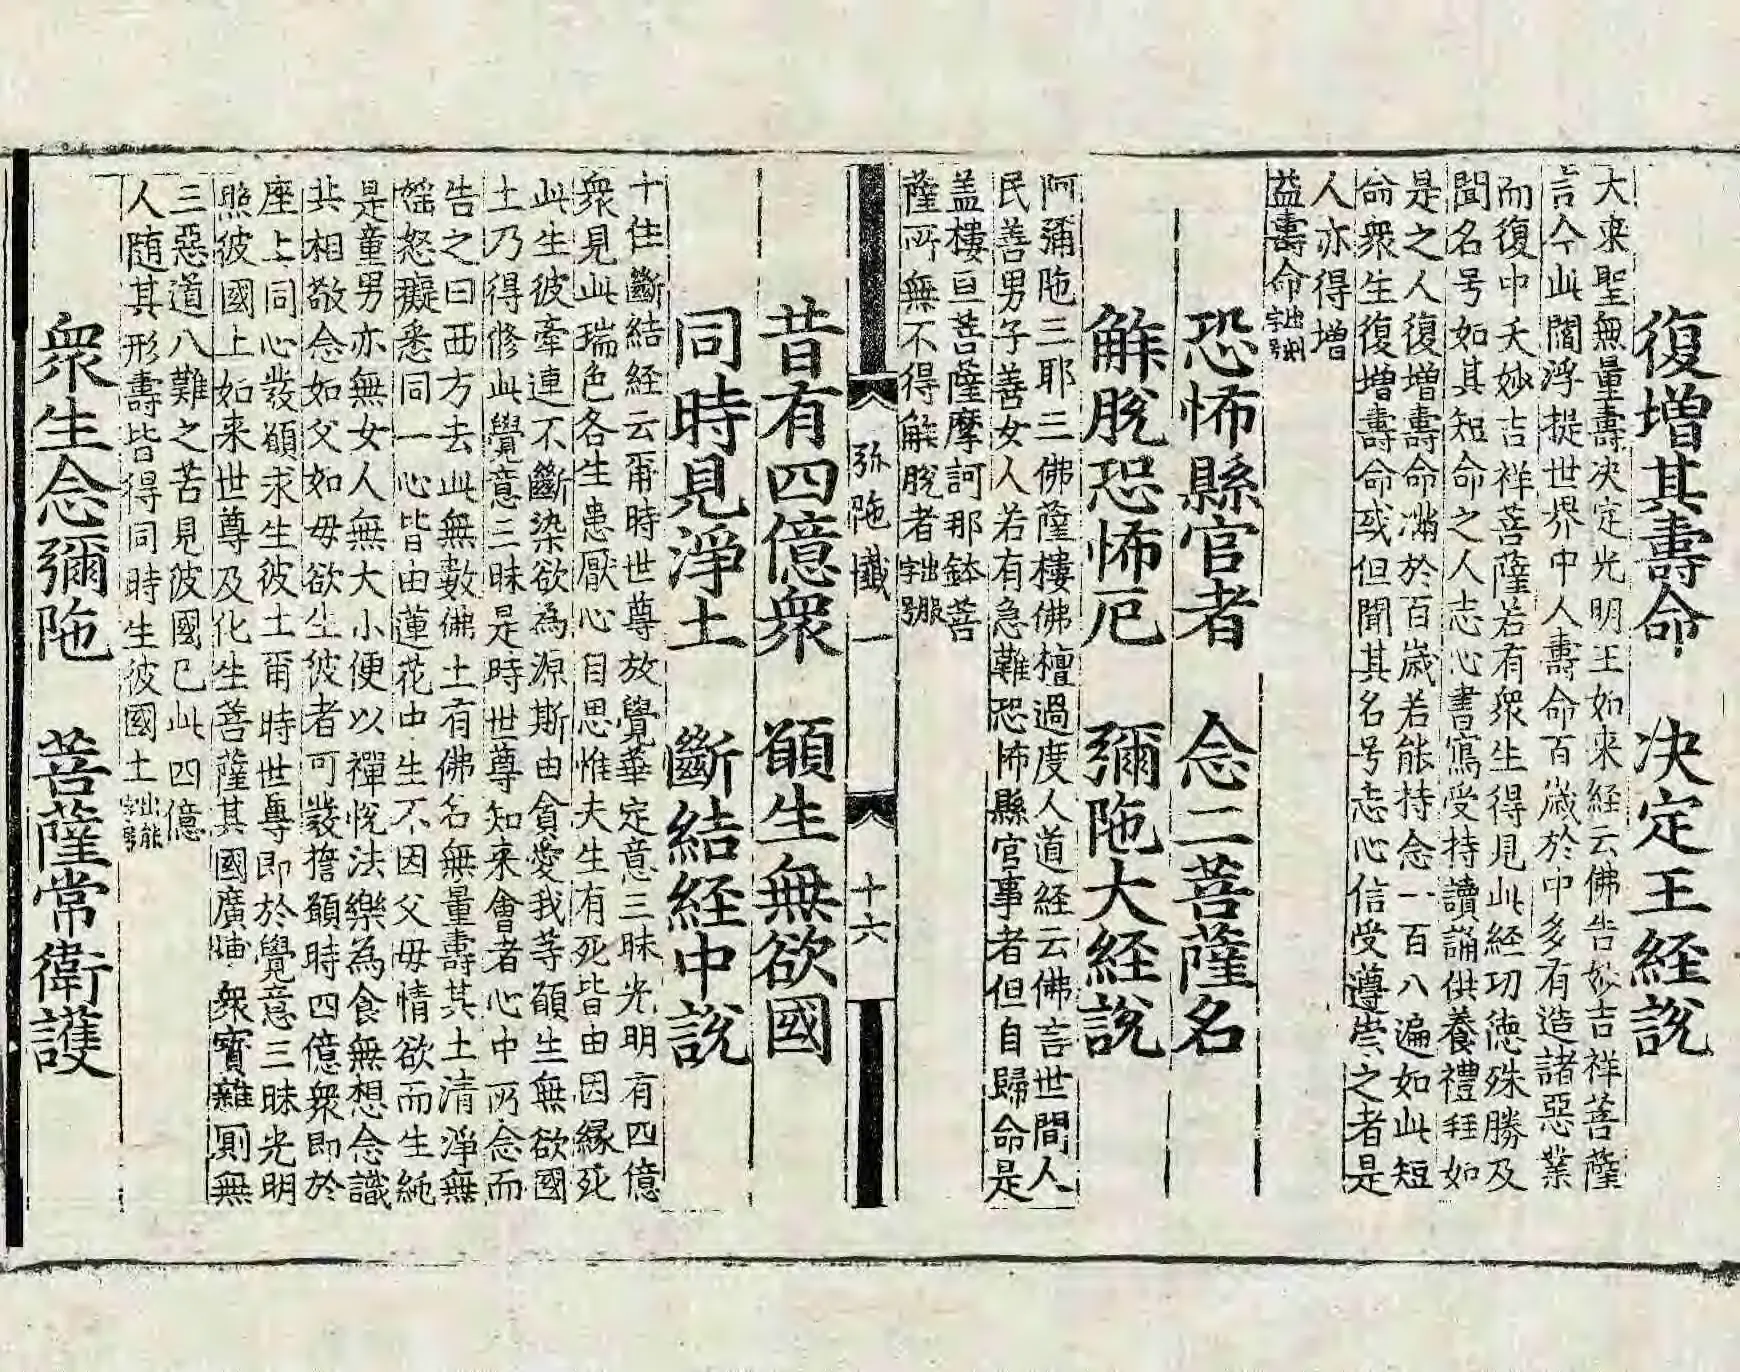 復增其壽命　決定王経說
大乘聖無量壽決定光明王如來経云佛告妙吉祥菩薩
言今此閻浮提世界中人壽命百歲於中多有造諸惡業
而復中夭妙吉祥菩薩若有衆生得見此経功徳殊勝及
聞名号如其短命之人志心書寫受持讀誦供養禮拜如
是之人復增壽命滿於百歲若能持念一百八遍如此短
命衆生復增壽命或但聞其名号志心信受遵崇之者是
人亦得增
益壽命
恐怖縣官者　念二菩薩名
解脫恐怖厄　彌陁大経說
阿彌陁三耶三佛薩樓佛檀過度人道経云佛言世間人
民善男子善女人若有急難恐怖縣官事者但自歸命是
盖樓亘菩薩摩訶那鉢菩
薩所無不得解脫者出服字号
弥陁懺一　十六
昔有四億衆　願生無欲國
同時見淨土　斷結経中說
十住斷結経云爾時世尊放覺華定意三昧光明有四億
衆見此瑞色各生患厭心自思惟夫生有死皆由因緣死
此生彼牽連不斷染欲為源斯由貪愛我等願生無欲國
土乃得修此覺意三昧是時世尊知來會者心中所念而
告之曰西方去此無數佛土有佛名無量壽其土清淨無
婬怒癡悉同一心皆由蓮花中生不因父母情欲而生純
是童男亦無女人無大小便以禪悅法樂為食無想念識
共相敬念如父如母欲生彼者可發誓願時四億衆即於
座上同心發願求生彼土爾時世尊即於覺意三昧光明
照彼國上如來世尊及化生菩薩其國廣博衆寶雜廁無
三惡道八難之苦見彼國已此四億
人随其形壽皆得同時生彼國土出能字号
衆生念彌陁　菩薩常衛護